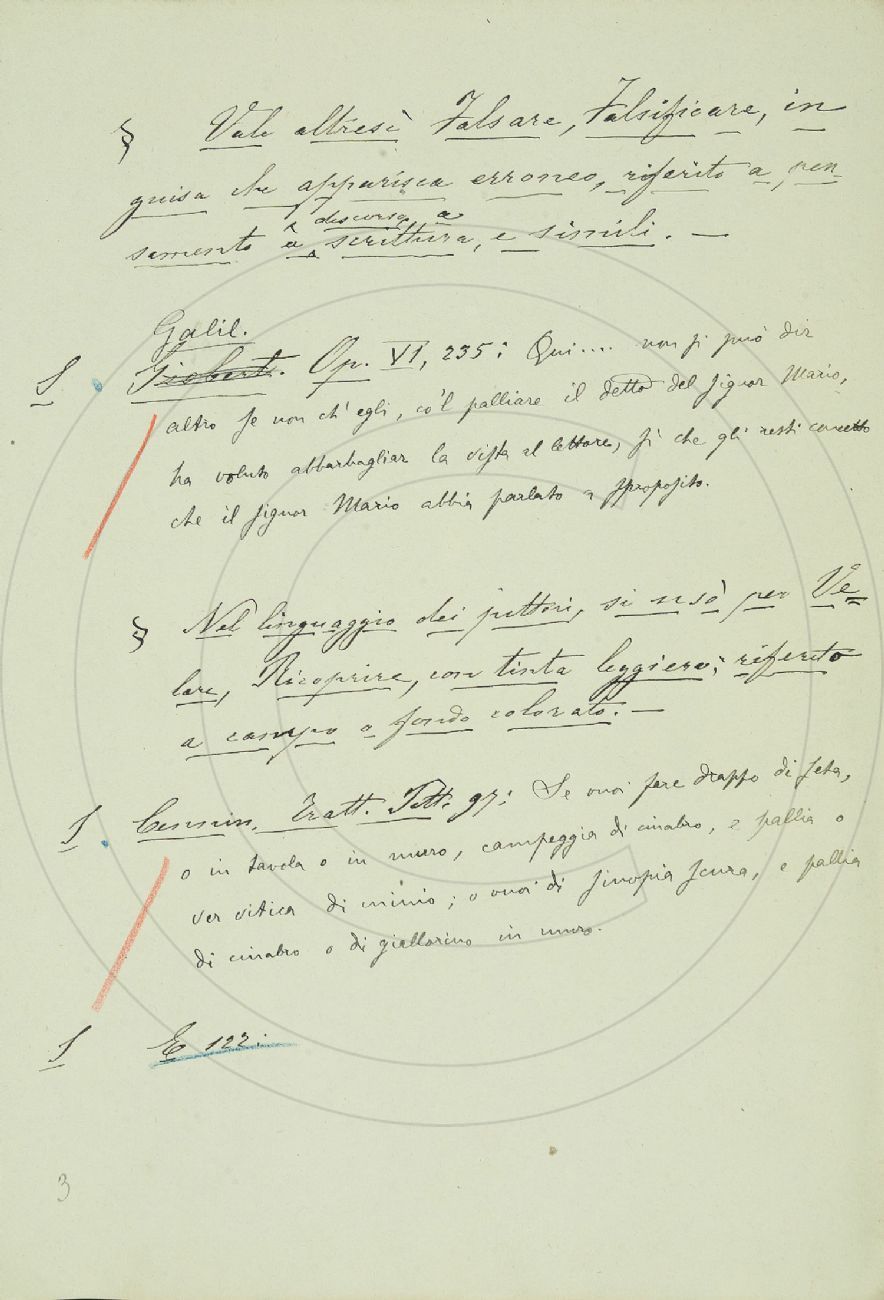 § Vale altresì Falsare, Falsificare, in
guisa che apparisca erroneo, riferito a pen
samento o a discorso, a scrittura, e simili. —
Galil.
S Giobert. Op. VI, 235: Qui.... non si può dir
altro se non ch' egli, co'l palliare il detto del signor Mario,
ha voluto abbarbagliar la vista al lettore, sì che gli resti concetto
che il signor Mario abbia parlato a sproposito.
§ Nel linguaggio dei pittori, si usò per Ve=
lare, Ricoprire, con tinta leggiera; riferito
a campo o fondo colorato. —
S Cennin. Tratt. Pitt. 97: Se vuoi fare drappo di seta,
o in tavola o in muro, campeggia di cinabro, e pallia o
ver vitica di minio; o vuoi di sinopia scura, e pallia
di cinabro o di giallorino in muro.
S E 122:
3